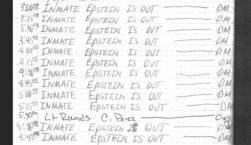 3:00 INMATE EPSTEIN IS OUT DM
3:15 INMATE EPSTEIN IS OUT DM
3:30 INMATE EPSTEIN IS OUT DM
3:45 INMATE EPSTEIN IS OUT DM
4:00 INMATE EPSTEIN IS OUT DM
4:15 INMATE EPSTEIN IS OUT DM
INMATE EPSTEIN IS OUT DM
INMATE EPSTEIN IS OUT DM
INMATE EPSTEIN IS OUT DM
INMATE EPSTEIN IS OUT DM
Lt C. Perez
INMATE EPSTEIN IS OUT DM
5:45 INMATE EPSTEIN IS OUT DM